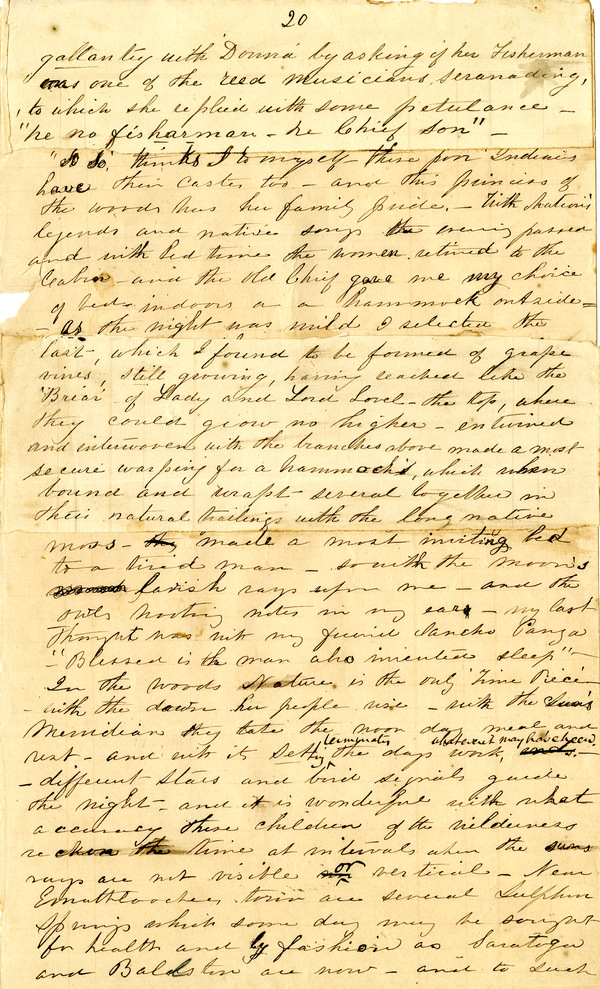 20
gallantry with 'Donna' by asking if her Fisherman
was one of the reed musicians seranading,
to which she replied with some petulance –
"he no fisharman – he Chief son" –
"So So", thinks I to myself these poor Indians
have their castes too – and this princess of
the woods has her family pride. – With Nation's
legends and native songs the evening passed
and with bed time the women retired to the
Cabin – and the old Chief gave me my choice
of bed – indoors or a hammock outside =
– as the night was mild I selected the
last, which I found to be formed of grape
vines, still growing, having reached like the
'Briar' of Lady and Lord Lovel – the top, where
they could grow no higher – entwined
and interwoven with the branches above made a most
secure warping for a hammock, which when
bound and wrapt – several together in
their natural trailings with the long native
moss – they made a most inviting bed
to a tired man – so with the moon's
lavish rays upon me – and the
owls hooting notes in my ears – my last
thought was with my friend Sancho Panza
– "Blessed is the man who invented sleep" –
In the woods Nature is the only Time Piece –
– with the dawn her people rise – with the Sun's
Meridian they take the noon day meal and
rest – and with its setting terminates the days work, whatever it may have been. –
– different Stars and bird signals guide
the night – and it is wonderful with what
accuracy these children of the wilderness
reckon the time at intervals when the suns
rays are not visible or vertical – Near
Emathloochees town are several Sulphur
Springs which some day may be sought
for health and by fashion as Saratoga
and Balston are now – and to such